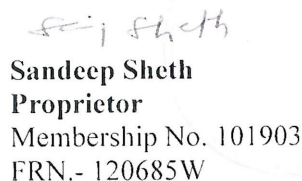 Sheth
Sandeep Sheth
Proprietor
Membership No. 101903
FRN.- 120685W